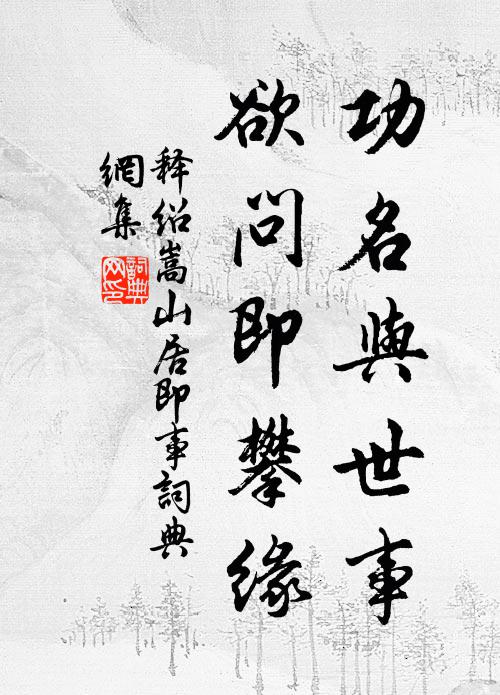 功名與世事
欲問即攀緣
释绍嵩山居即事詞典
網集
詞典
网印